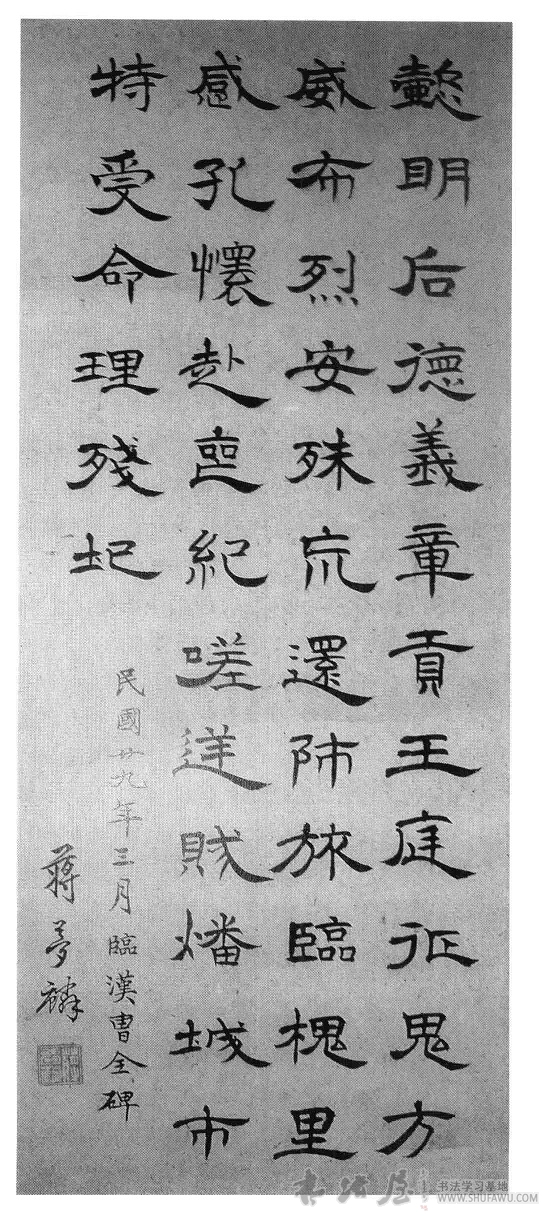 懿明后德義章貢王庭征鬼方
威布烈安殊巟還師旅臨槐里
感孔懷赴喪紀嗟逆賊燔城市
特受命理殘圮
民國廿九年三月臨漢曹全碑
蔣夢麟
书法屋
书法学习基地
WWW.SHUFAWU.COM